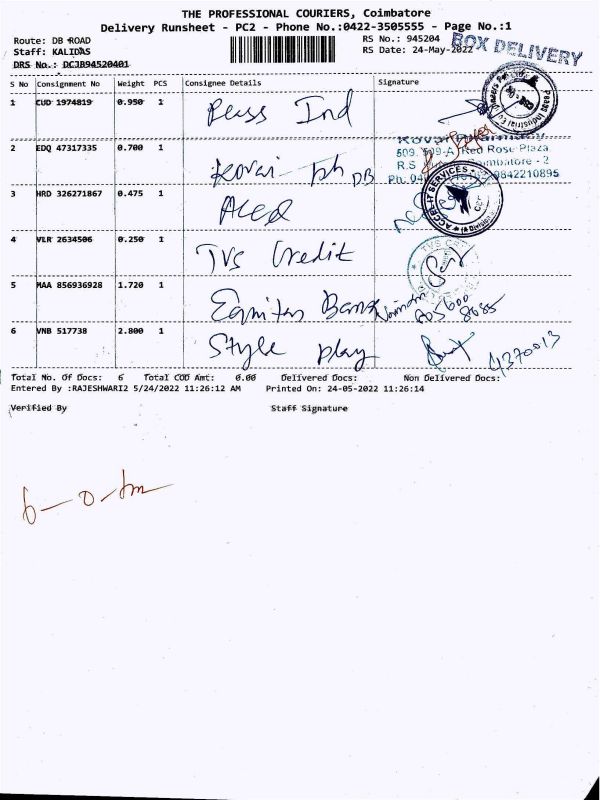 THE PROFESSIONAL COURIERS, Coimbatore
Delivery Runsheet - PC2 - Phone No.:0422-3505555 - Page No.:1
Route: DB ROAD
RS No.: 945204
BOX DELIVERY
Staff: KALIDAS
RS Date: 24-May-2022
DRS No.: DCJB94520401
S No Consignment No Weight PCS Consignee Details Signature
1 CUD 1974819 0.950 1 Peass Ind
2 EDQ 47317335 0.700 1 Kovai ph DB
Kovai Pharmacy
509, 509-A, Red Rose Plaza
Coimbatore - 2
9842210895
3 HRD 326271867 0.475 1 Acel
ACCEL IT SERVICES
4 VLR 2634506 0.250 1 TVS Credit
TVS
5 MAA 856936928 1.720 1 Equitas Bank
6 VNB 517738 2.800 1 Style play
4370013
Total No. Of Docs: 6 Total COD Amt: 0.00 Delivered Docs: Non Delivered Docs:
Entered By :RAJESHWARI2 5/24/2022 11:26:12 AM Printed On: 24-05-2022 11:26:14
Verified By Staff Signature